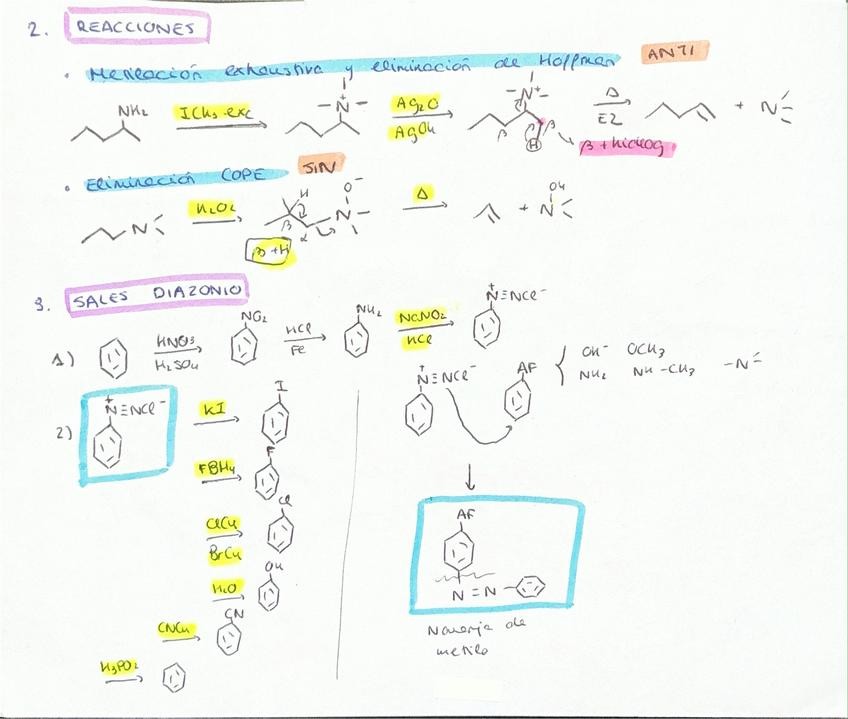 2. REACCIONES
• Metilación exhaustiva y eliminación de Hoffman ANTI
NH₂ ICH₃ exc N⁺ Ag₂O AgOH β β H N⁺ Δ E2 + N
β + hidrog
• Eliminación COPE SIN
N H₂O₂ H β α N⁺ O⁻ Δ + N OH
β + H
3. SALES DIAZONIO
1) HNO₃ H₂SO₄ NO₂ HCl Fe NH₂ NaNO₂ HCl N⁺≡NCl⁻
2) N⁺≡NCl⁻ KI I
N⁺≡NCl⁻ AF { OH⁻ OCH₃
NH₂ NH-CH₃ -N
FBH₄ F
ClCu Cl
BrCu
H₂O OH
CNCu CN
H₃PO₂
AF
N=N
Naranja de
metilo